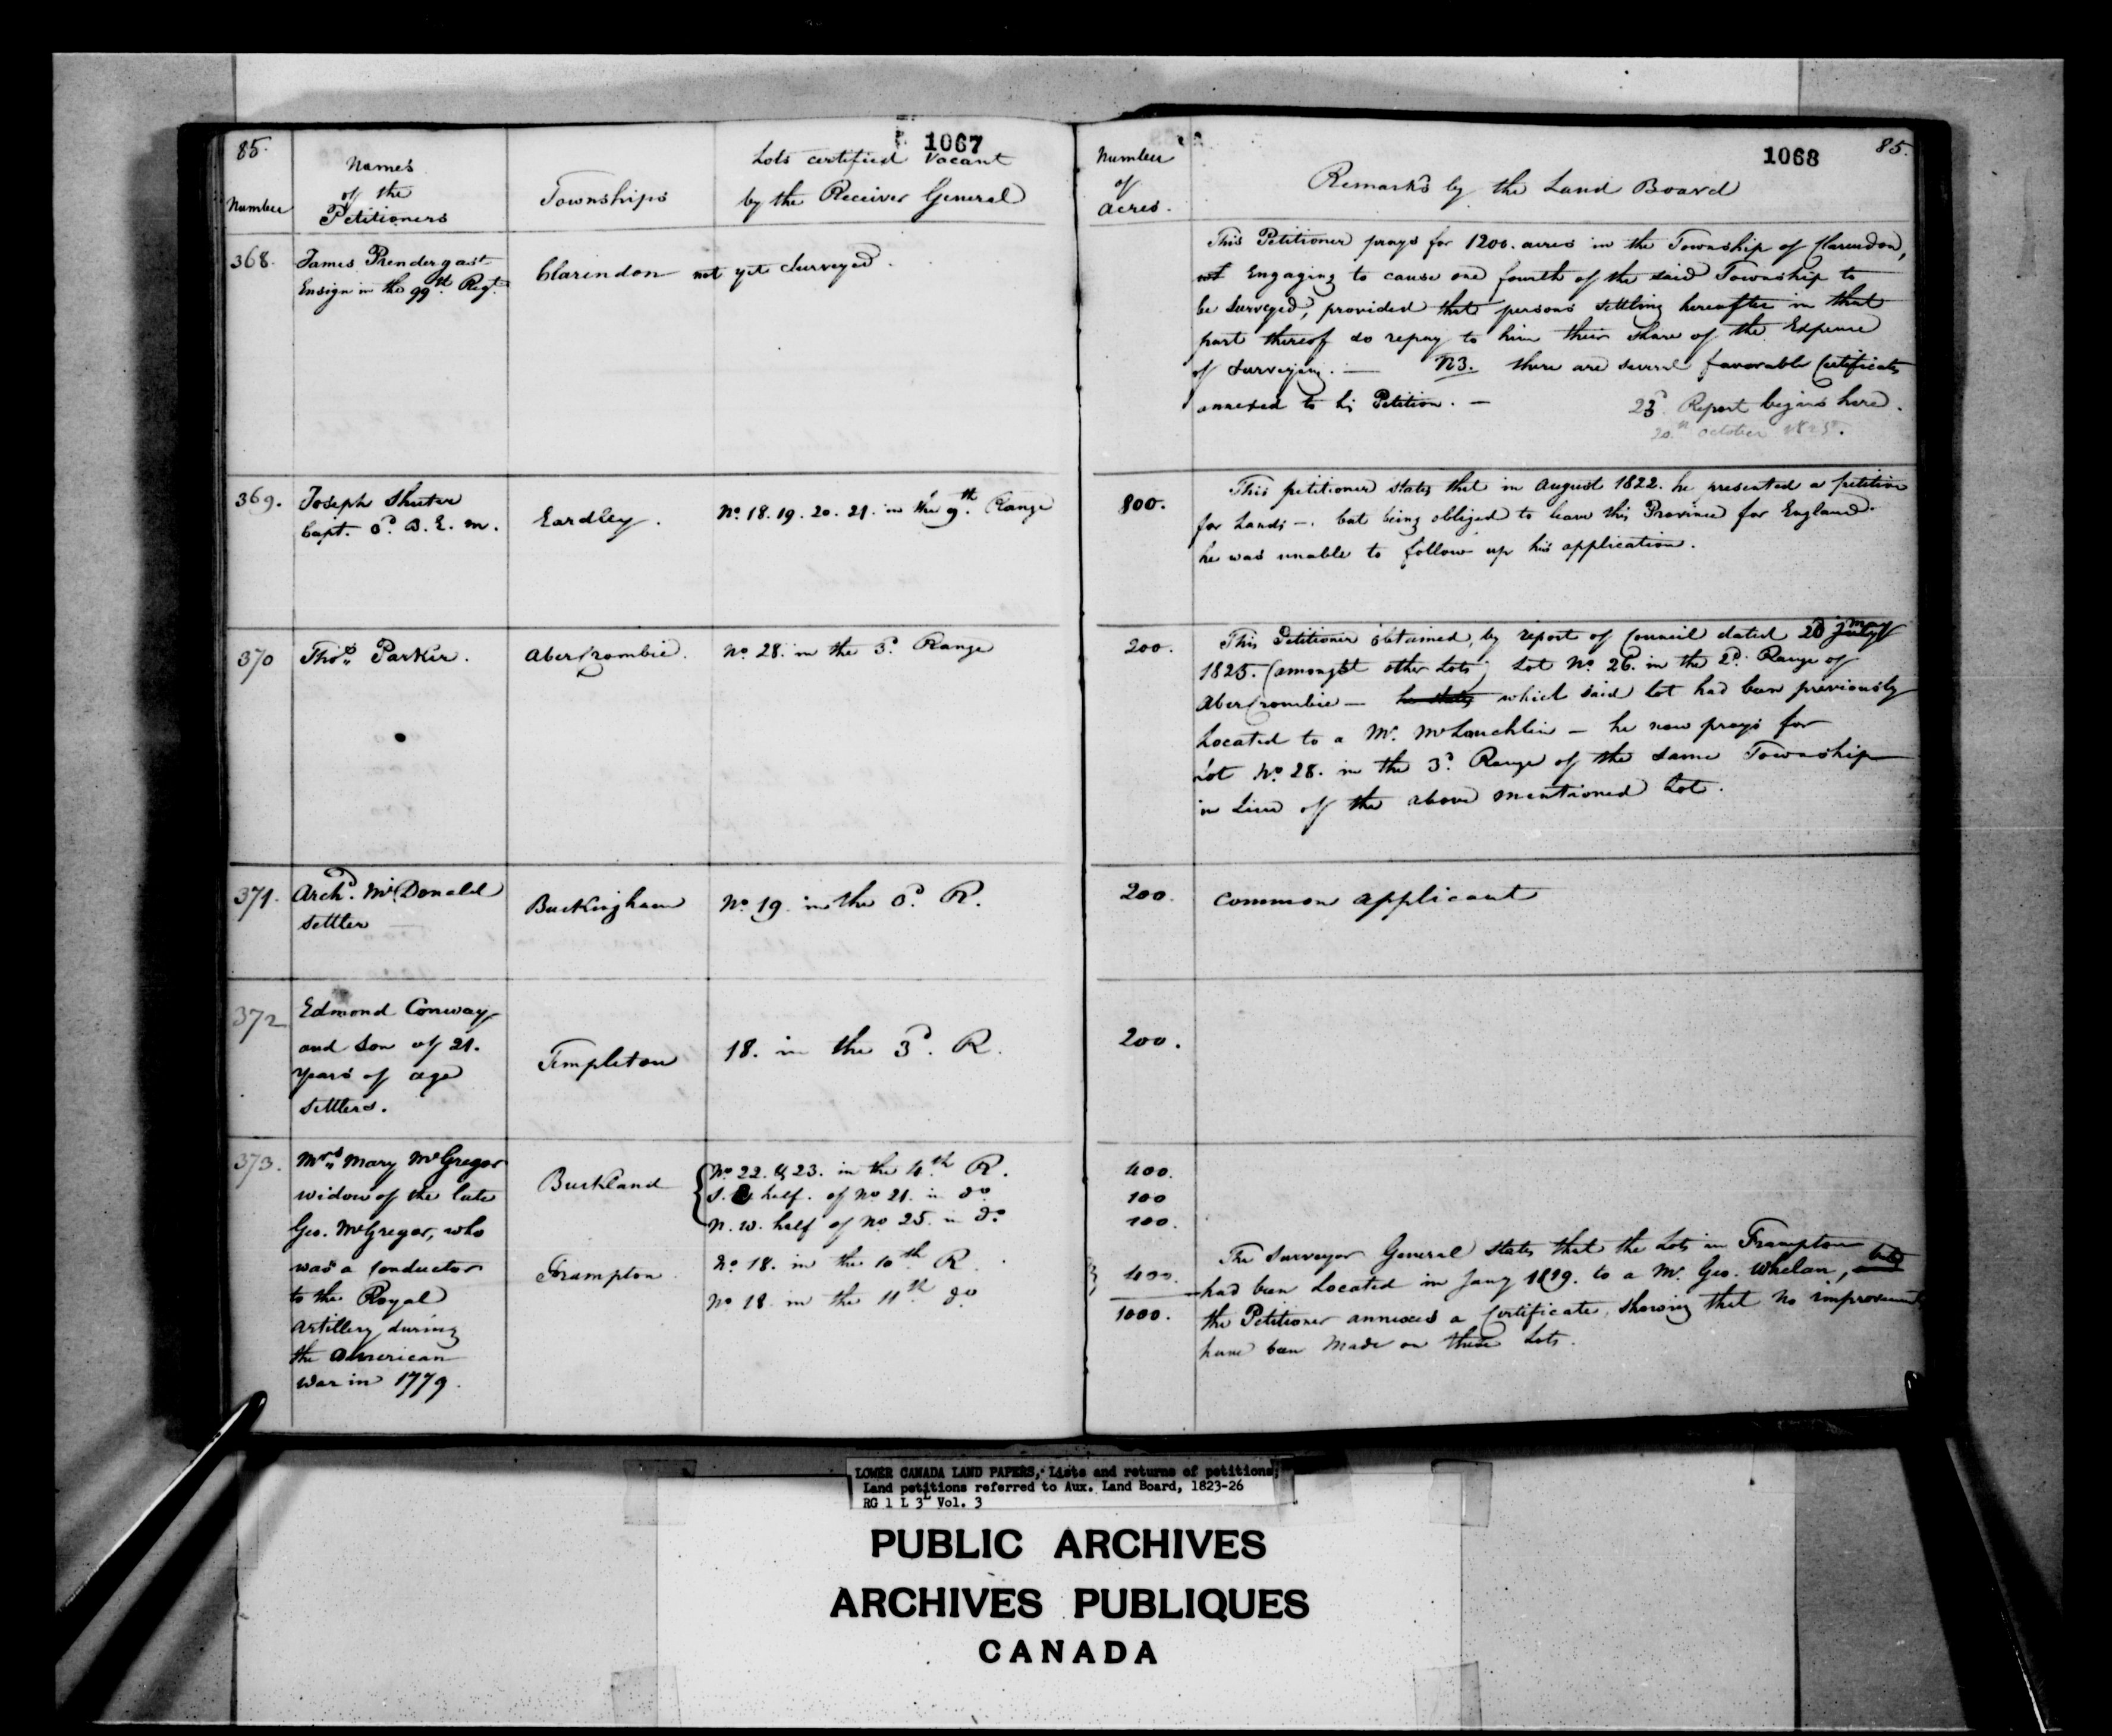 85.
1067
Number
Names
of the
Petitioners
Townships
Lots certified Vacant
by the Receiver General
368.
James Prendergast
Ensign in the 99th Regt.
Clarendon
not yet surveyed.
369.
Joseph Shuter
Capt. B. E. m.
Eardley.
No. 18. 19. 20. 21. in the 9th. Range
370
Thos. Parker.
AberCrombie.
No. 28. in the 3d. Range
371.
Archd. McDonald
settler
Buckingham
No. 19. in the R.
372
Edmond Conway
and Son of 21.
years of age
settlers.
Templeton
18. in the 3d. R.
373.
Mrs. Mary McGregor
widow of the late
Geo. McGregor, who
was a Conductor
to the Royal
Artillery during
the American
War in 1779.
Buckland
No. 22. & 23. in the 4th R.
S. half. of No 21. in do
N. W. half of No 25. in do
Frampton.
No. 18. in the 10th R.
No 18 in the 11th do
1068
85.
Number
of
Acres.
Remarks by the Land Board
This Petitioner prays for 1200. acres in the Township of Clarendon,
not Engaging to cause one fourth of the said Township to
be Surveyed, provided that persons settling hereafter in that
part thereof do repay to him their share of the Expense
of surveying. — NB. there are several favorable Certificates
annexed to his Petition. — 23d. Report begins here.
20th October 1825.
800.
This petitioner states that in August 1822. he presented a petition
for Lands —. but being obliged to leave this Province for England
he was unable to follow up his application.
200.
This Petitioner obtained, by report of Council dated 20 July may
1825. (amongst other Lots) Lot No. 26. in the 2d. Range of
AberCrombie — he states which said Lot had been previously
Located to a Mr. McLauchlin — he now prays for
Lot No. 28. in the 3d. Range of the same Township
in Lieu of the above mentioned Lot.
200.
Common applicant
200.
400.
100
100.
400.
1000.
The Surveyor General states that the Lots in Frampton
had been Located in Jany 1819. to a Mr. Geo. Whelan, but
the Petitioner annexes a Certificate, shewing that no improvements
have been made on these Lots.
LOWER CANADA LAND PAPERS, Lists and returns of petitions;
Land petitions referred to Aux. Land Board, 1823-26
RG 1 L 3L Vol. 3
PUBLIC ARCHIVES
ARCHIVES PUBLIQUES
CANADA